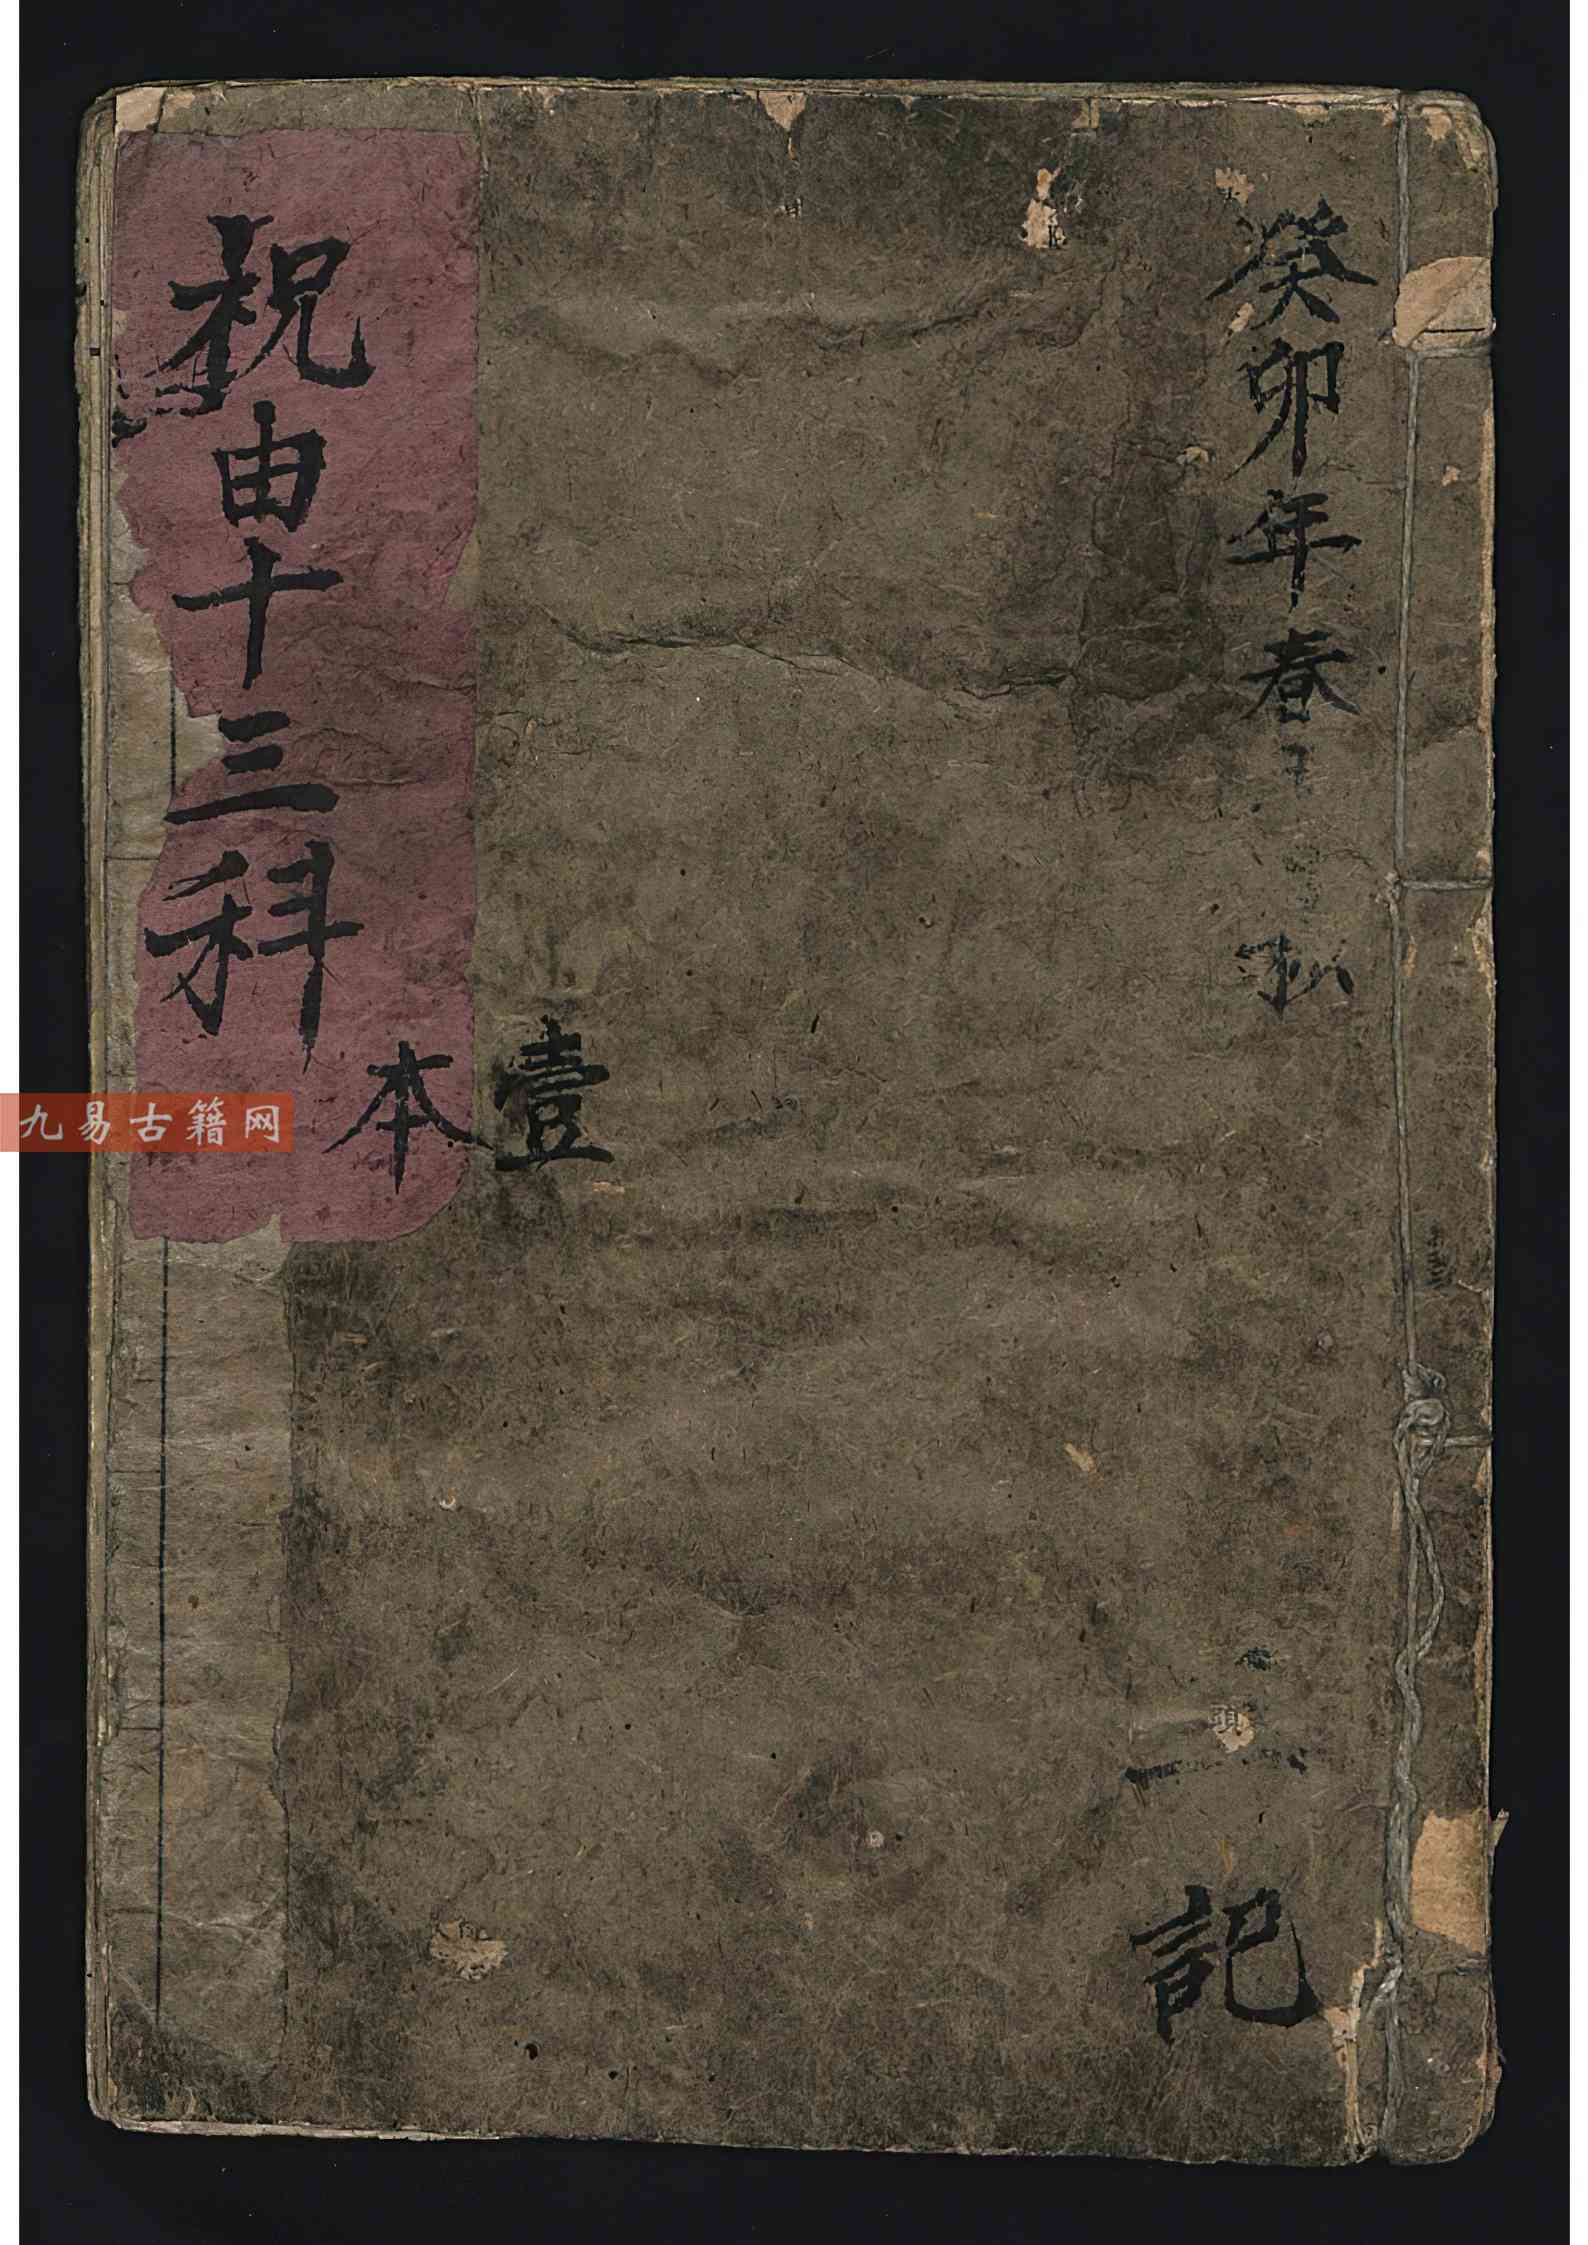 癸卯年春
抄
記
壹本
祝由十三科
九易古籍网